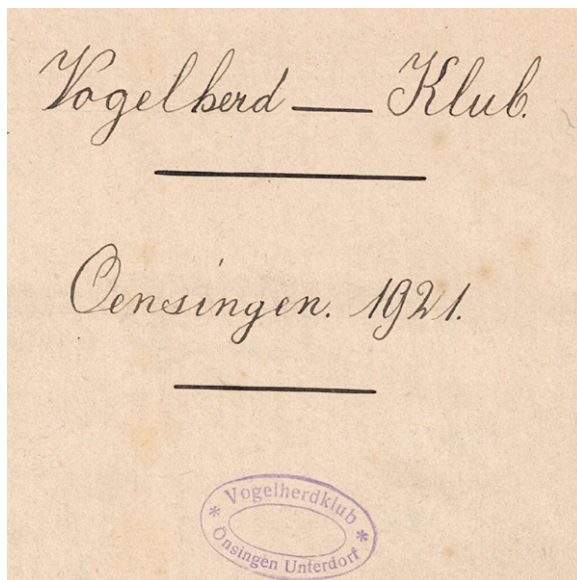 Vogelherd — Klub.
Oensingen. 1921.
* Vogelherdklub *
Önsingen Unterdorf